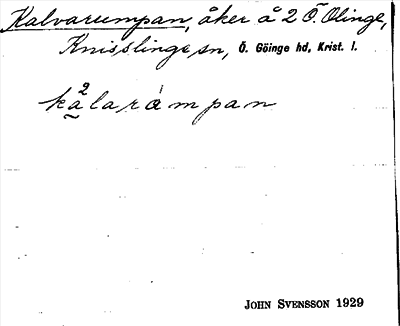 Kalvarumpan, åker å 2 Ö. Olinge,
Knisslinge sn, Ö. Göinge hd, Krist. l.
kalarampan
JOHN SVENSSON 1929